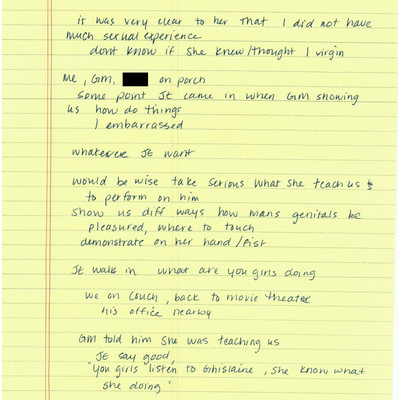 it was very clear to her that I did not have
much sexual experience
dont know if she knew/thought I virgin
Me, GM, on porch
some point JE came in when GM showing
us how do things
I embarrassed
whatever JE want
would be wise take serious what she teach us
to perform on him
show us diff ways how mans genitals be
pleasured, where to touch
demonstrate on her hand/fist
JE walk in what are you girls doing
we on couch, back to movie theater
his office nearby
GM told him she was teaching us
JE say good,
"you girls listen to Ghislaine, she know what
she doing"